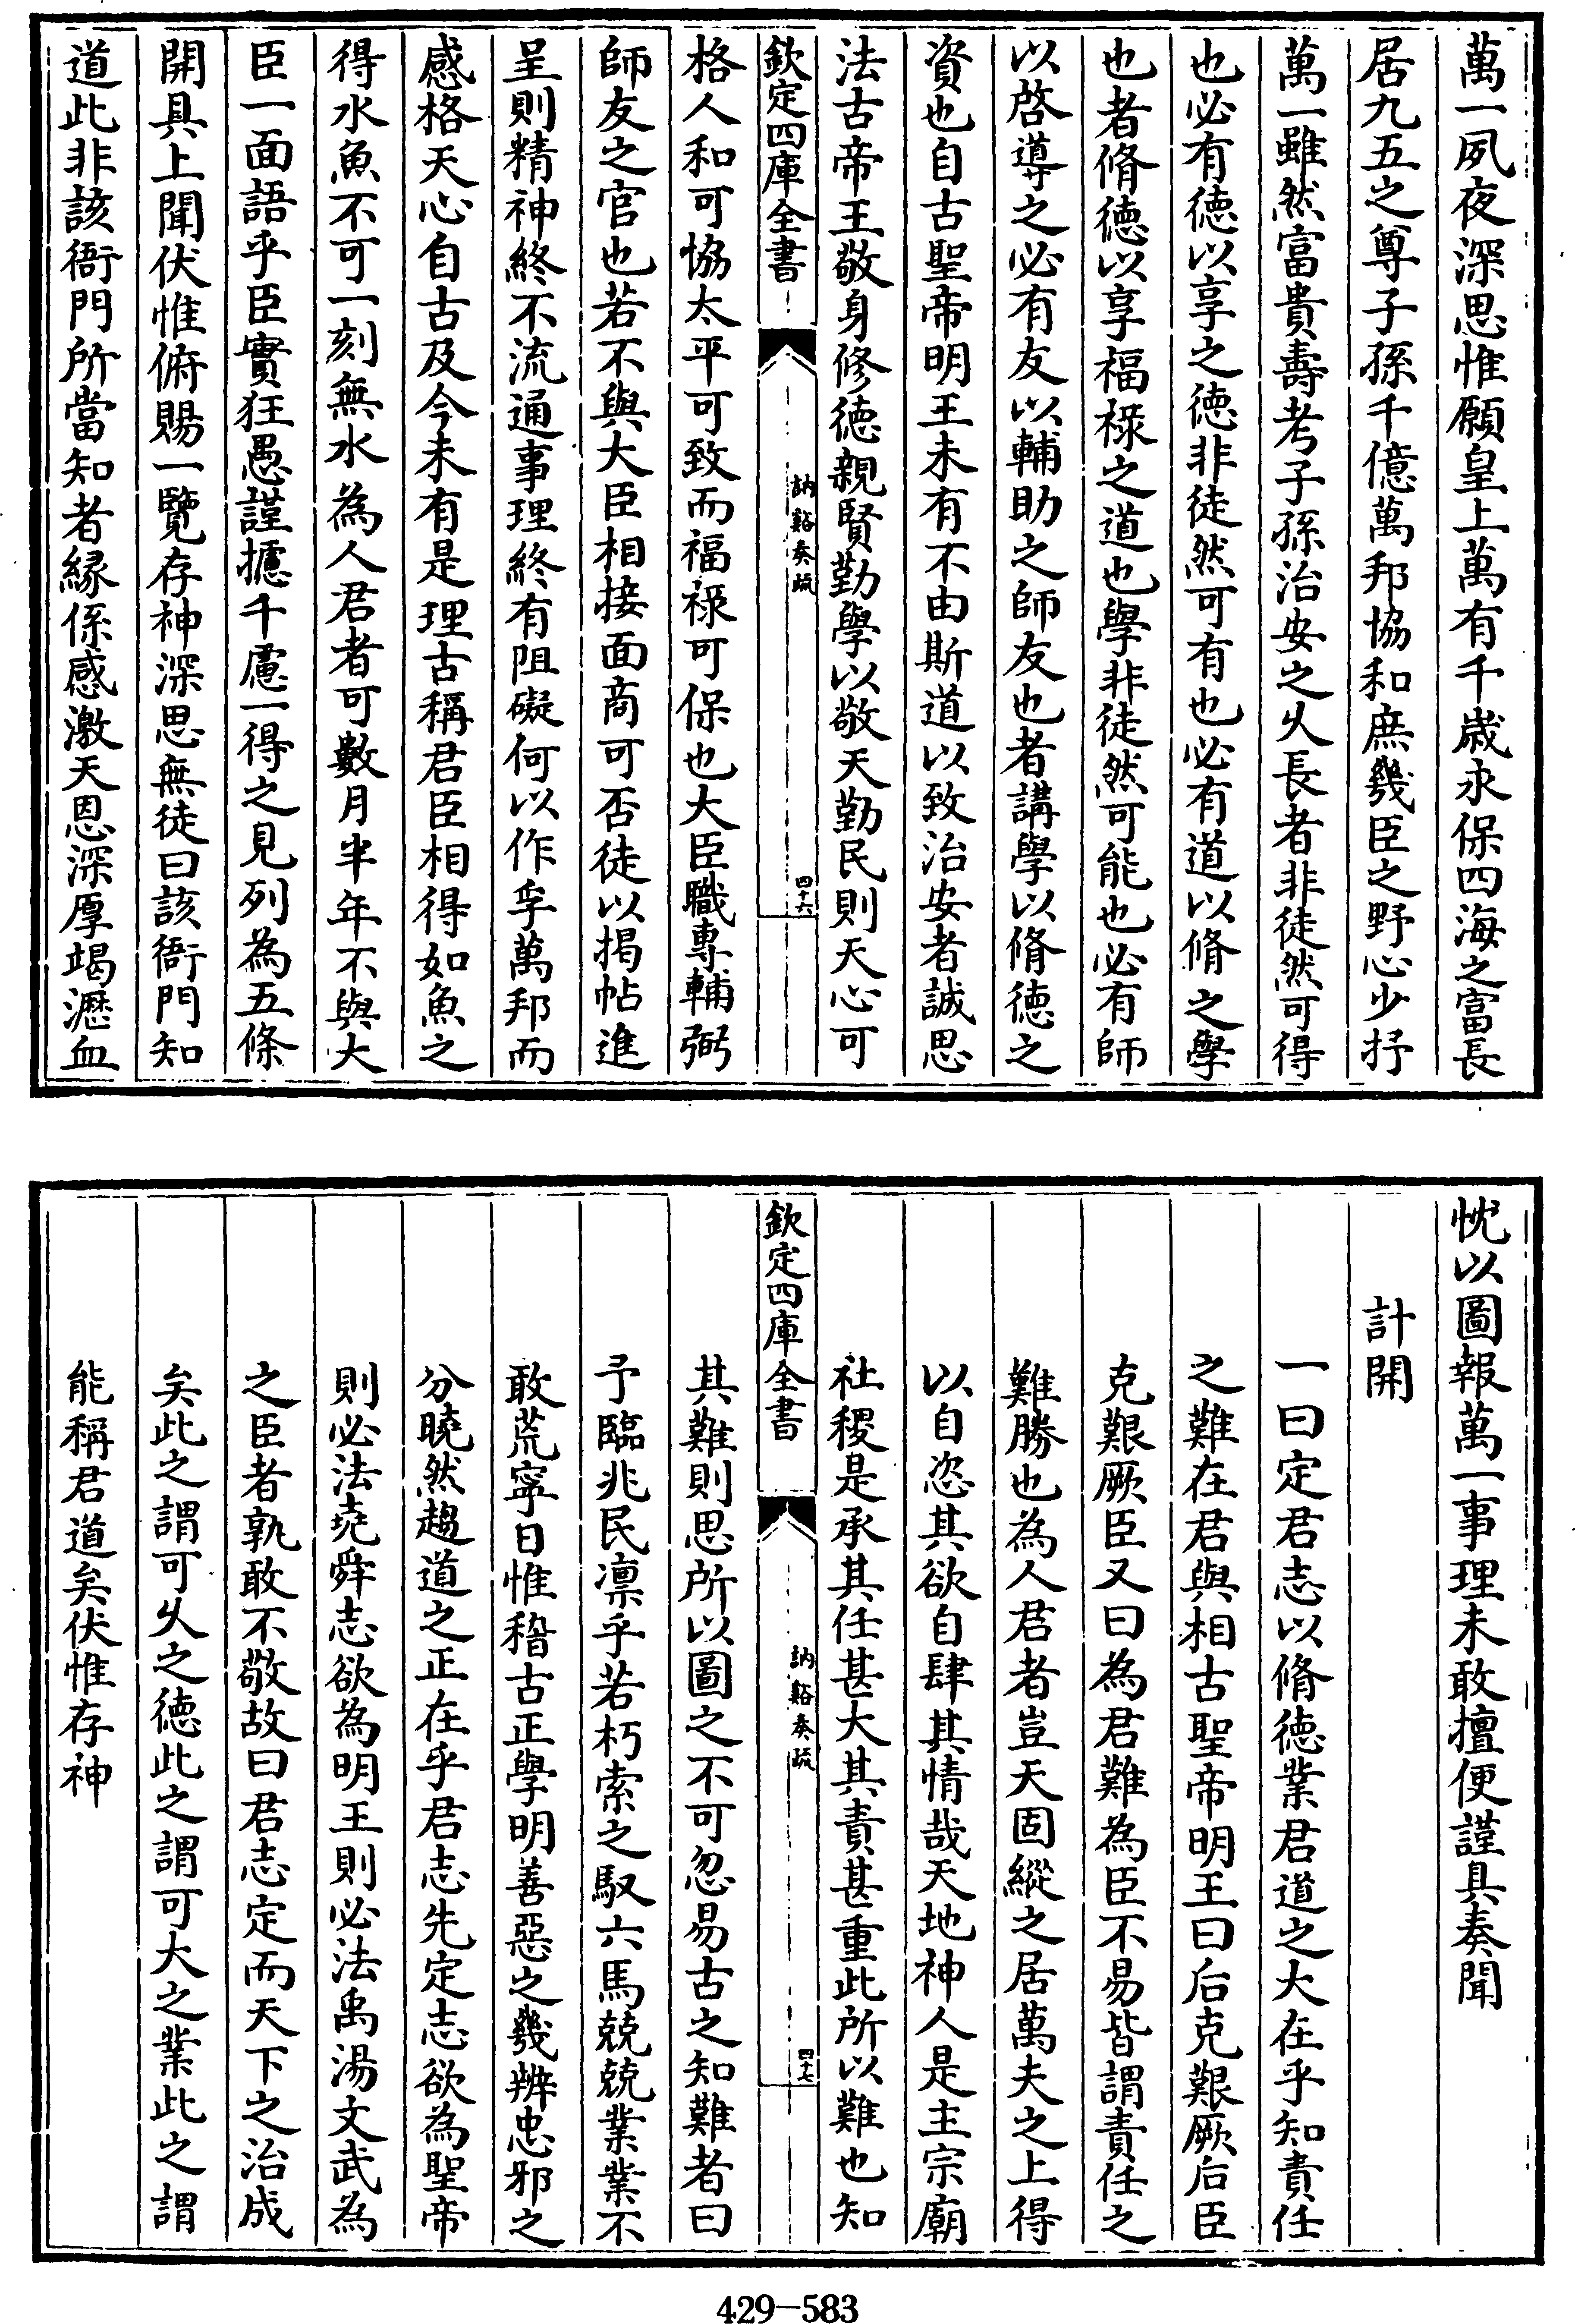 萬一夙夜深思惟願皇上萬有千歲永保四海之富長
居九五之尊子孫千億萬邦協和庶幾臣之野心少抒
萬一雖然富貴壽考子孫治安之久長者非徒然可得
也必有徳以享之徳非徒然可有也必有道以脩之學
也者脩徳以享福禄之道也學非徒然可能也必有師
以啓導之必有友以輔助之師友也者講學以脩徳之
資也自古聖帝明王未有不由斯道以致治安者誠思
法古帝王敬身修徳親賢勤學以敬天勤民則天心可
欽定四庫全書
訥谿奏疏
四十六
格人和可協太平可致而福禄可保也大臣職專輔弼
師友之官也若不與大臣相接面商可否徒以揭帖進
呈則精神終不流通事理終有阻礙何以作孚萬邦而
感格天心自古及今未有是理古稱君臣相得如魚之
得水魚不可一刻無水為人君者可數月半年不與大
臣一面語乎臣實狂愚謹攄千慮一得之見列為五條
開具上聞伏惟俯賜一覽存神深思無徒曰該衙門知
道此非該衙門所當知者縁係感激天恩深厚竭瀝血
忱以圖報萬一事理未敢擅便謹具奏聞
計開
一曰定君志以脩徳業君道之大在乎知責任
之難在君與相古聖帝明王曰后克艱厥后臣
克艱厥臣又曰為君難為臣不易皆謂責任之
難勝也為人君者豈天固縱之居萬夫之上得
以自恣其欲自肆其情哉天地神人是主宗廟
社稷是承其任甚大其責甚重此所以難也知
欽定四庫全書
訥谿奏疏
四十七
其難則思所以圖之不可忽易古之知難者曰
予臨兆民凛乎若朽索之馭六馬兢兢業業不
敢荒寧日惟稽古正學明善惡之幾辨忠邪之
分曉然趨道之正在乎君志先定志欲為聖帝
則必法堯舜志欲為明王則必法禹湯文武為
之臣者孰敢不敬故曰君志定而天下之治成
矣此之謂可久之徳此之謂可大之業此之謂
能稱君道矣伏惟存神
429—583